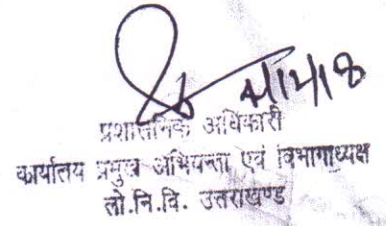 4/12/18
प्रशासनिक अधिकारी
कार्यालय प्रमुख अभियन्ता एवं विभागाध्यक्ष
लो.नि.वि. उत्तराखण्ड